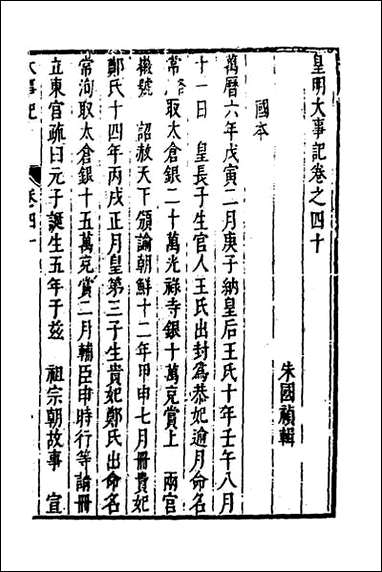 皇明大事記卷之四十
朱國禎輯
國本
萬曆六年戊寅二月庚子納皇后王氏十年壬午八月
十一日 皇長子生宮人王氏出封爲恭妃逾月命名
常洛取太倉銀二十萬光祿寺銀十萬充賞上 兩宮
徽號 詔赦天下頒諭朝鮮十二年甲申七月冊貴妃
鄭氏十四年丙戌正月皇第三子生貴妃鄭氏出命名
常洵取太倉銀十五萬充賞二月輔臣申時行等請冊
立東宮疏曰元子誕生五年于兹 祖宗朝故事 宣
大事記 卷四十